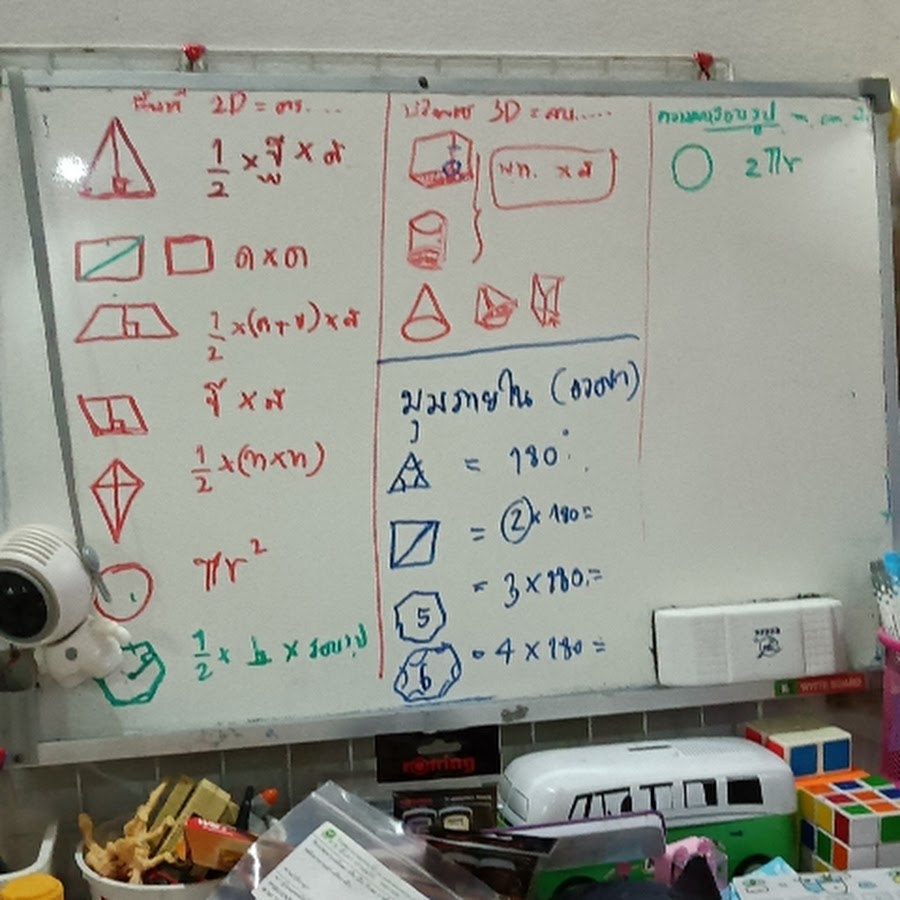 พื้นที่ 2D = ตร....
1/2 × ฐ × ส
พ
ด × ด
1/2 × (ก + ข) × ส
ฐ × ส
1/2 × (ท × ท)
πr²
1/2 × h × รอบรูป
ปริมาตร 3D = ลบ.....
พท. × ส
มุมภายใน (องศา)
= 180°
= 2 × 180 =
5 = 3 × 180 =
6 = 4 × 180 =
ความยาวรอบรูป
2πr
WHITE BOARD
rotring